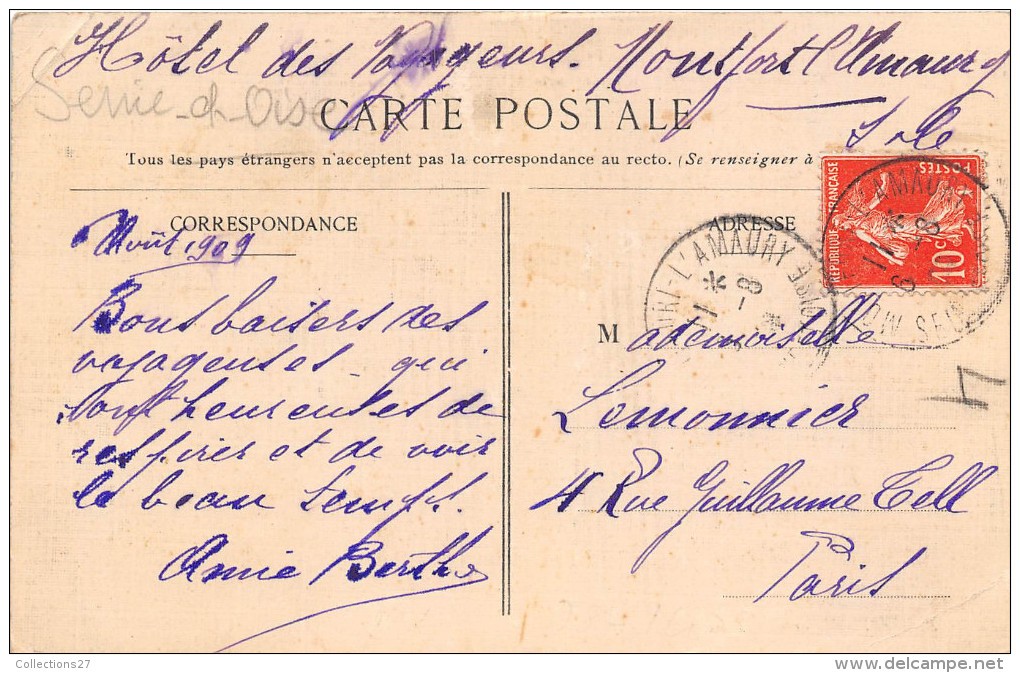 Hôtel des Voyageurs. Montfort l'Amaury
Seine-et-Oise
CARTE POSTALE
Tous les pays étrangers n'acceptent pas la correspondance au recto. (Se renseigner à
CORRESPONDANCE
Août 1909
Bons baisers des
voyageuses qui
sont heureuses de
respirer et de voir
le beau temps.
Amie Berthe
ADRESSE
Mademoiselle
Lemonnier
4 Rue Guillaume Tell
Paris
RÉPUBLIQUE FRANÇAISE
POSTES
10c
L'AMAURY
11 * 8
L'AMAURY
SEINE
11 * 8
Collections27
delcampe.net